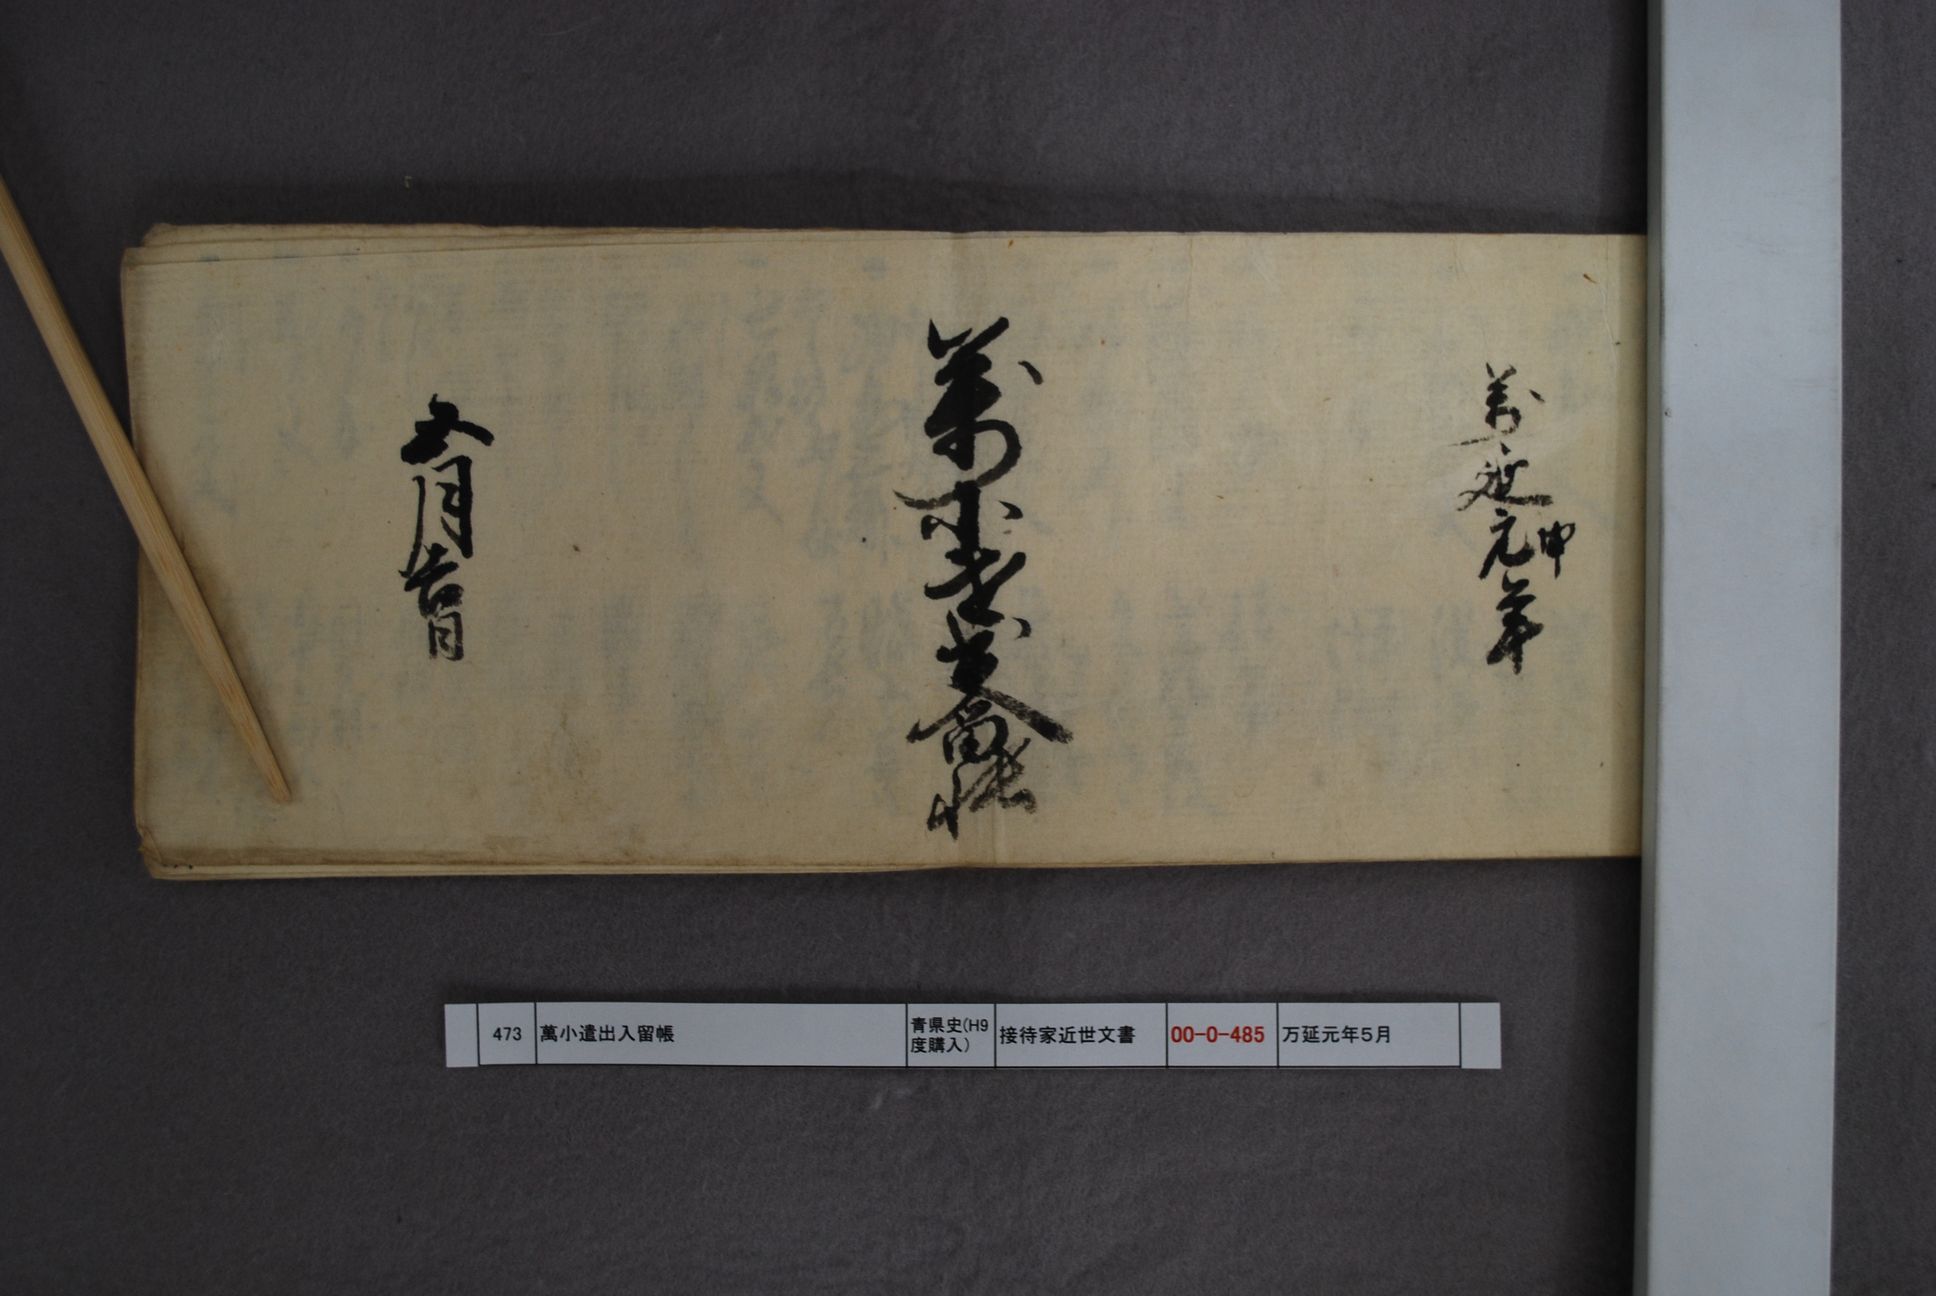 萬延元申年
萬小遣出入留帳
五月吉日
473 萬小遣出入留帳 青県史(H9度購入) 接待家近世文書 00-0-485 万延元年5月